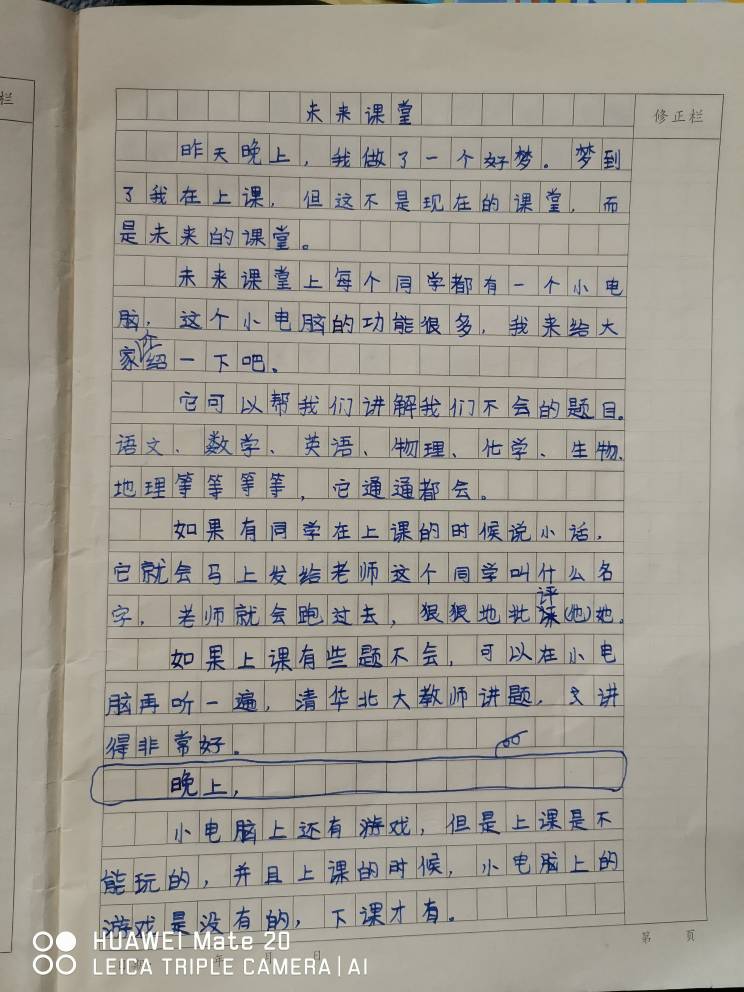 栏
修正栏
未来课堂
昨天晚上，我做了一个好梦。梦到
了我在上课，但这不是现在的课堂，而
是未来的课堂。
未来课堂上每个同学都有一个小电
脑，这个小电脑的功能很多，我来给大
家介绍一下吧。
它可以帮我们讲解我们不会的题目。
语文、数学、英语、物理、化学、生物、
地理等等等等，它通通都会。
如果有同学在上课的时候说小话，
它就会马上发给老师这个同学叫什么名
字，老师就会跑过去，狠狠地批评(他)她。
如果上课有些题不会，可以在小电
脑再听一遍，清华北大教师讲题，又讲
得非常好。
晚上，
小电脑上还有游戏，但是上课是不
能玩的，并且上课的时候，小电脑上的
游戏是没有的，下课才有。
第 页
年 月 日
HUAWEI Mate 20
LEICA TRIPLE CAMERA | AI